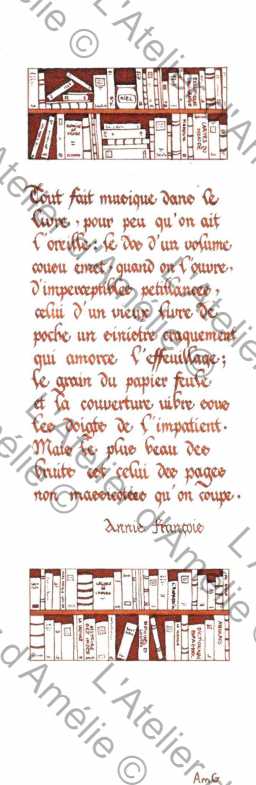 Tout fait musique dans le
livre, pour peu qu'on ait
l'oreille : le dos d'un volume
cousu émet, quand on l'ouvre,
d'imperceptibles pétillances,
celui d'un vieux livre de
poche un sinistre craquement
qui amorce l'effeuillage ;
le grain du papier feule
et la couverture vibre sous
les doigts de l'impatient.
Mais le plus beau des
bruits est celui des pages
non massicotées qu'on coupe.
Annie François
AmG
© L'Atelier d'Amélie ©
L'Atelier d'Amélie ©
L'Atelier d'Amélie ©